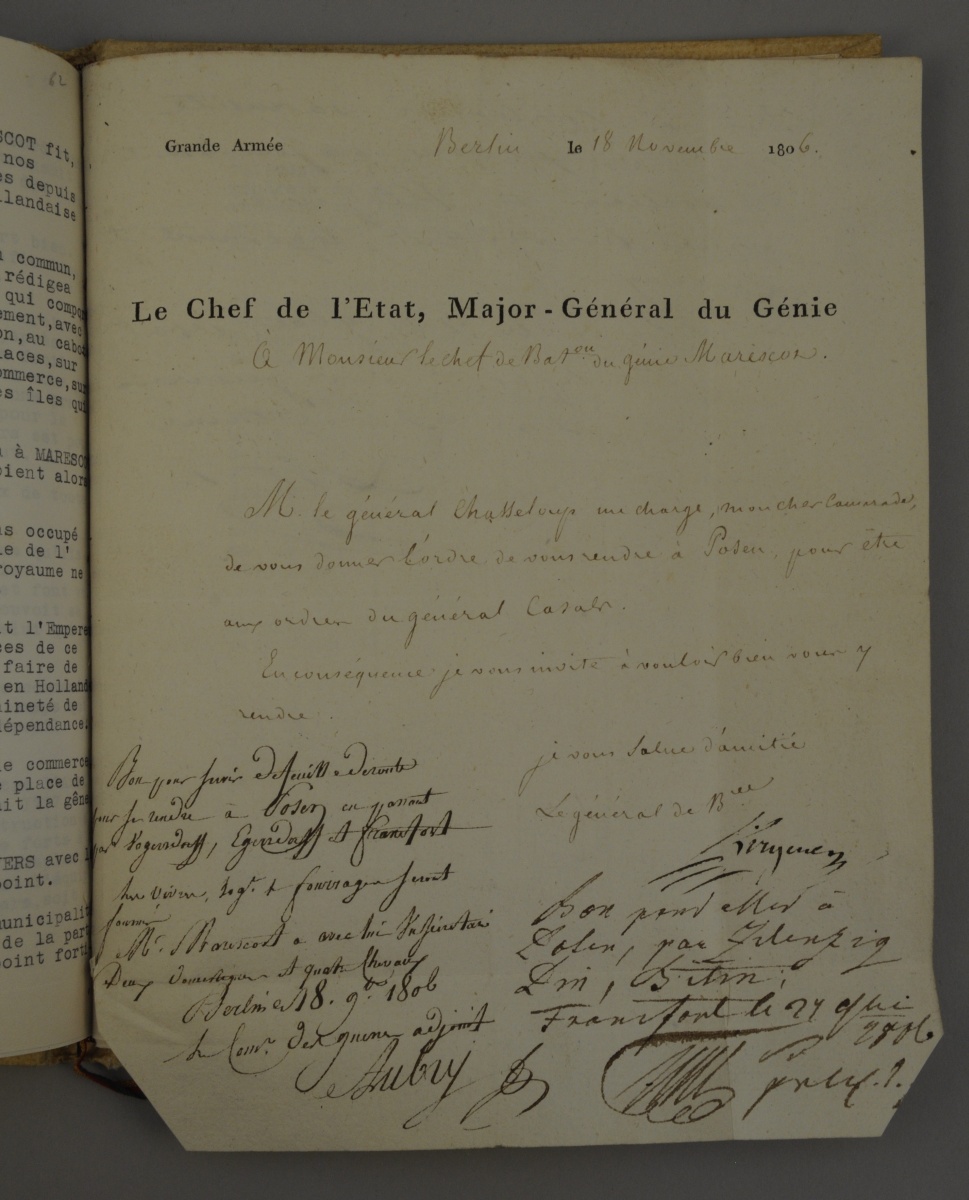 62
SCOT fit,
nos
es depuis
llandaise
commun,
rédigea
qui compo
ement,avec
on,au cabo
laces,sur
ommerce,su
es îles qu
à MARESCO
oient alor
ns occupé
le de l'
royaume ne
it l'Empere
ces de ce
faire de
en Holland
aineté de
dépendance.
le commerce
place de
ait la gêne
VERS avec l
point.
municipalit
de la part
point forti
Grande Armée Berlin le 18 Novembre 1806.
Le Chef de l'Etat, Major-Général du Génie
A Monsieur le chef de Baton du génie Marescot.
M. le général Chasseloup me charge, mon cher Camarade,
de vous donner l'ordre de vous rendre à Posen, pour être
aux ordres du général Casals.
En conséquence je vous invite à vouloir bien vous y
rendre.
je vous salue d'amitié
Le général de Bde
Kirgener
Bon pour servir de feuille de route
pour se rendre à Posen en passant
par Vogersdorff, Egersdorff et francfort
les vivres, logt. et fourrages seront
fournis
Mr. Marescot a avec lui un secrétaire
Deux domestiques et quatre chevaux
Berlin le 18. 9bre 1806
Le Comre. des guerres adjoint
Aubry
Bon pour aller à
Posen, par Zilenzig
Francfort le 24
1806